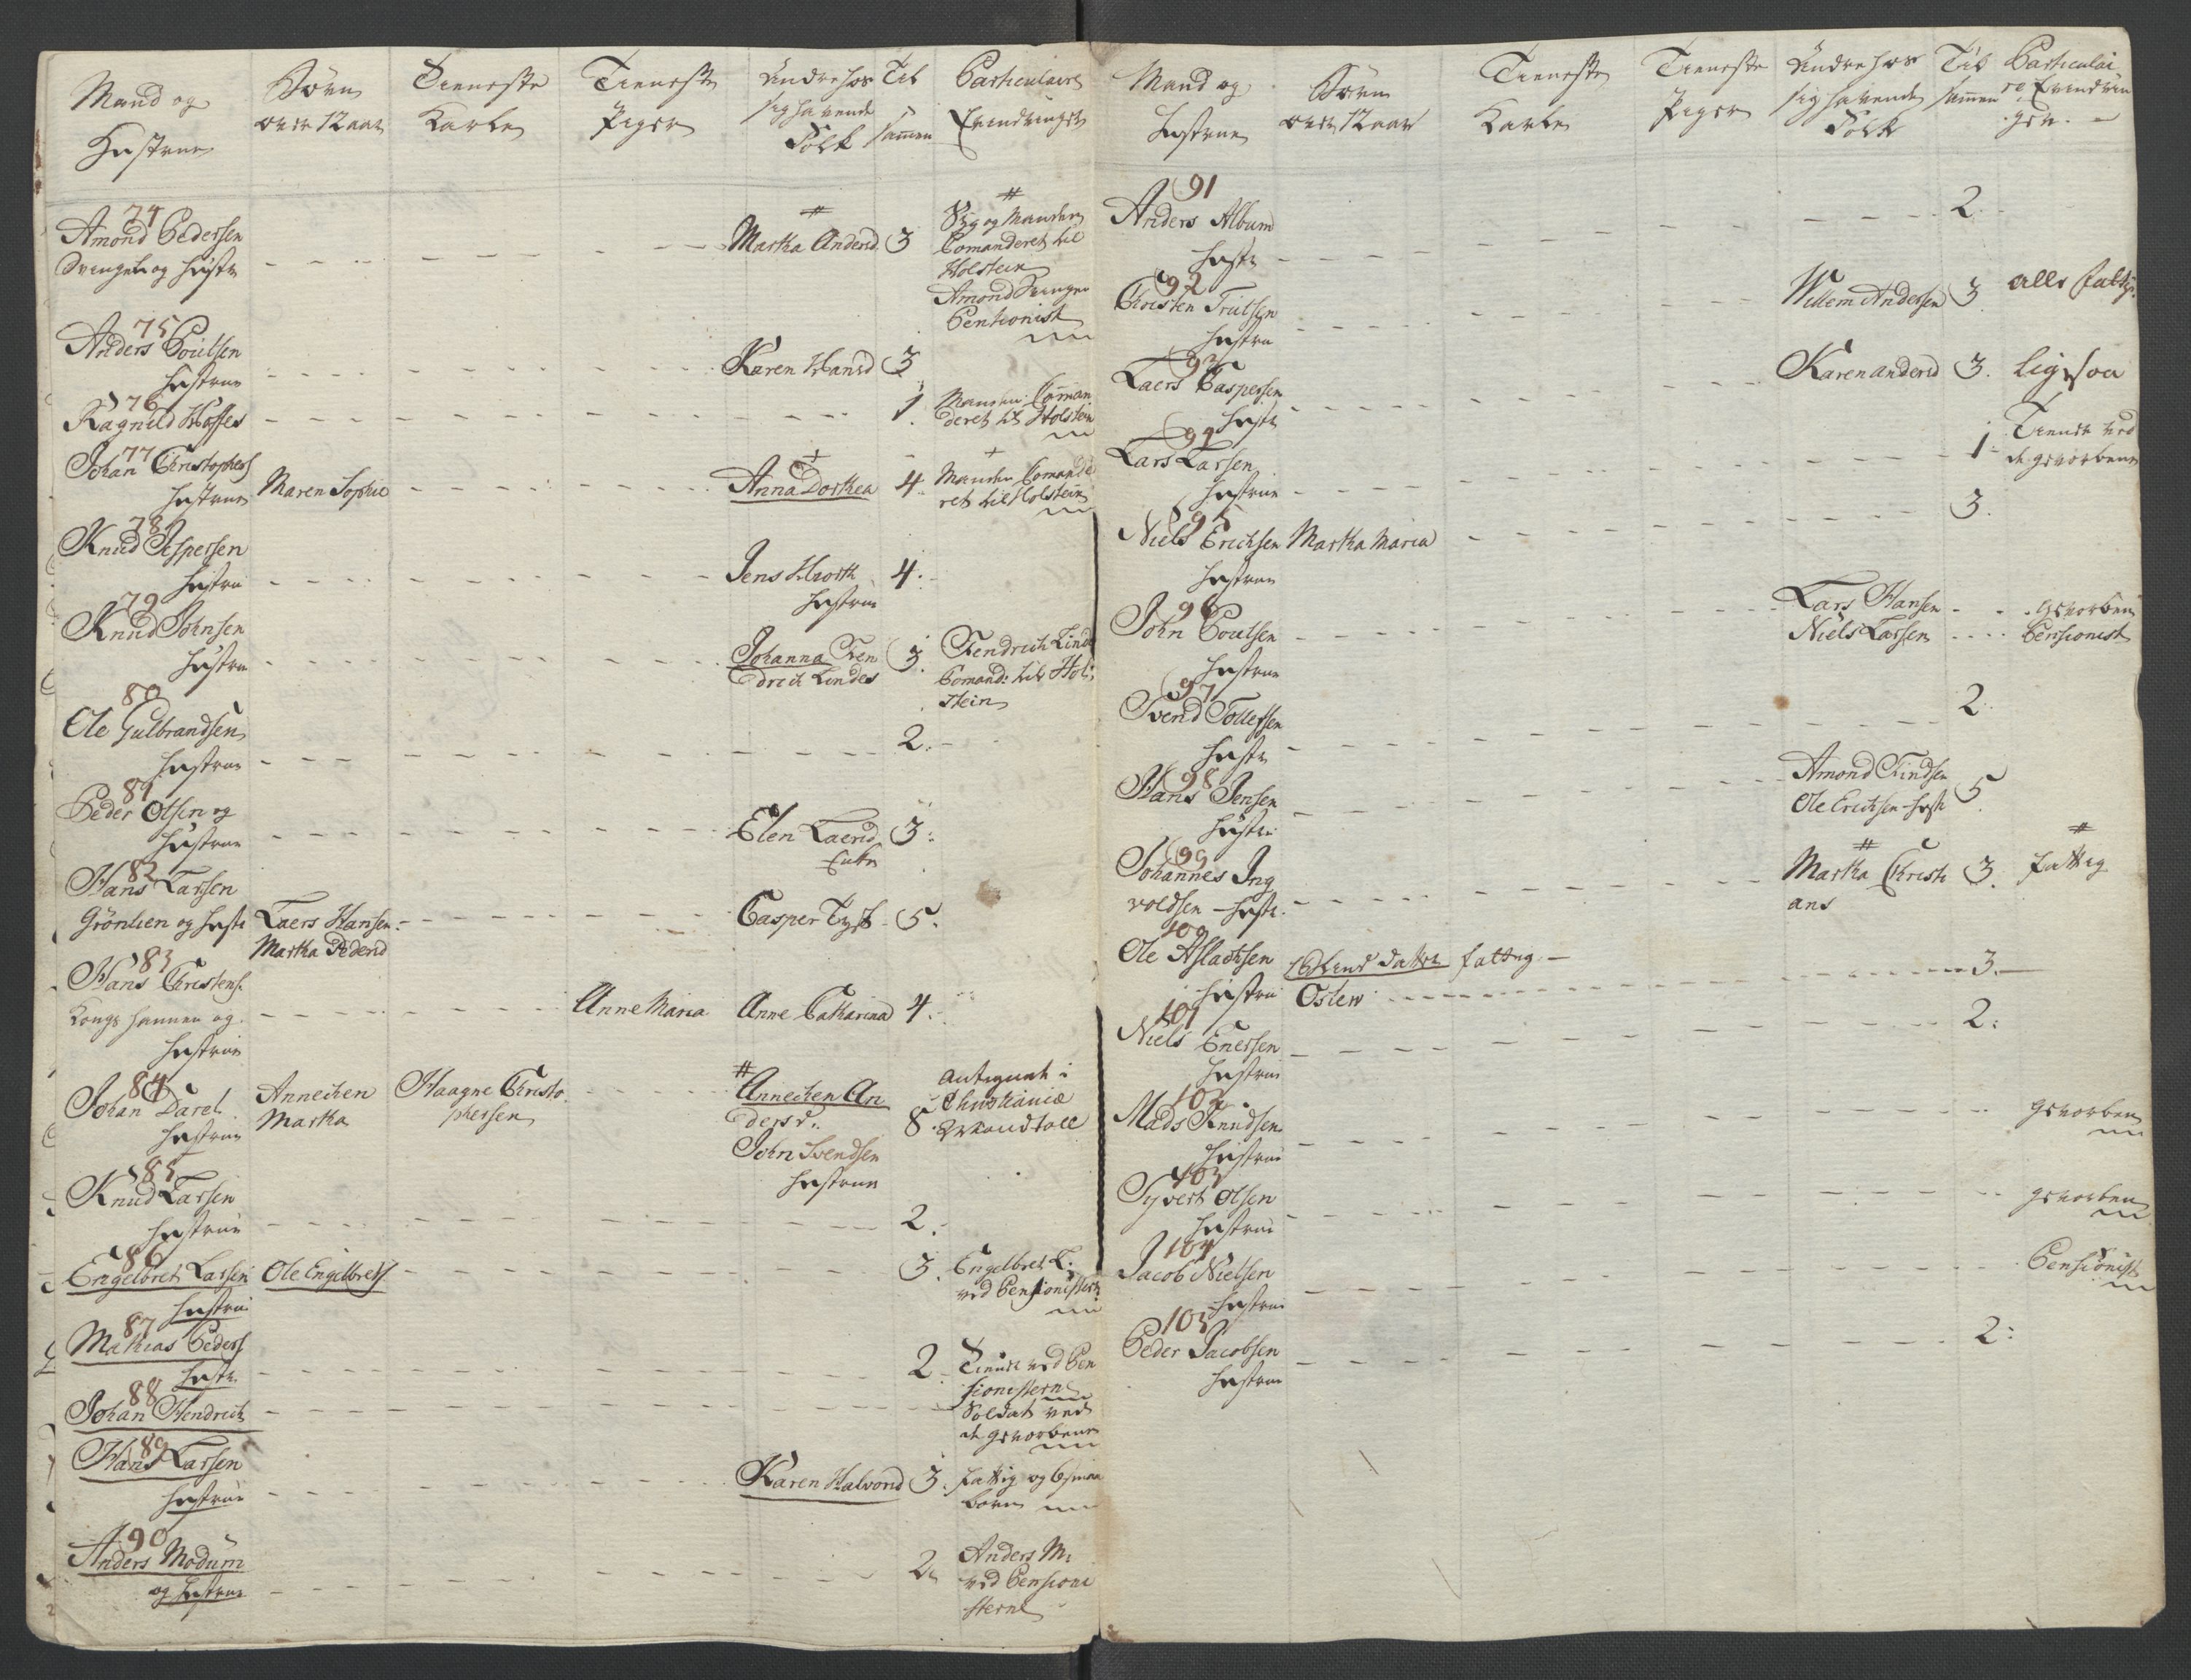 Mand og
Hustrue
Börn
over 12 aar
Tieneste
Karle
Tieneste
Piger
Andre hos
sig havende
Folk
Til
sammen
Particulaire
Erindringer
74
Amond Pedersen
Svingen og Hustr
#
Martha Andersd
3
#
Syg og Manden
Comanderet til
Holstein
Amond Svingen
Pentionist
75
Anders Poulsen
Hustrue
Karen Hansd
3
76
Ragnild Hoffes
1
Manden Coman
deret til Holstein
77
Johan Christophers
Hustrue
Maren Sophie
+
Anna Dorthea
4
+
Manden Comande
ret til Holstein
78
Knud Jespersen
Hustru
Jens Hiorth
Hustrue
4
79
Knud Johnsen
Hustru
Johanna Fen
drich Lindes
3
Fendrich Linde
Comand: til Hol:
stein
80
Ole Gulbrandsen
Hustrue
2
81
Peder Olsen og
Hustrue
Elen Laersd
Enke
3
82
Hans Larsen
Grönlien og Hustr
Laers Hansen
Martha Pedersd
Casper Tysk
5
83
Hans Christens.
Kongshannen og
Hustrue
Anne Maria
Anne Catharina
4
84
Johan Darel
Hustrue
Annechen
Martha
Haagne Christo
phersen
#
Annechen An
dersd.
John Svendsen
Hustrue
8
antegnet i
Christiania
Mandtall
85
Knud Larsen
Hustrue
2
86
Engelbret Larsen
Hustrue
Ole Engelbrets
3
Engelbret L.
ved Pensionisterne
87
Mathias Peders
Hustr.
2
Tient ved Pen
sionisterne
88
Johan Hendrich
Soldat ved
de gevorbene
89
Hans Larsen
Hustrue
Karen Halvorsd
3
fattig og smaa
börn
90
Anders Modum
og Hustrue
2
Anders M:
ved Pensioni
sterne
Mand og
Hustrue
Börn
over 12 aar
Tieneste
Karle
Tieneste
Piger
Andre hos
sig havende
Folk
Til
sammen
Particulai
re Erindrin
ger
91
Anders Album
Hustr
2
92
Christen Truelsen
Hustru
Willem Andersen
3
alle fattig
93
Laers Caspersen
Hustr
Karen Andersd
3
ligesaa
94
Lars Larsen
Hustrue
1
Tienste ved
de gevorbene
95
Niels Erichsen
Hustrue
Martha Maria
3
96
John Poulsen
Hustrue
Lars Hansen
Niels Larsen
gevorben
Pensionist
97
Svend Tollefsen
Hustr
2
98
Hans Jensen
Hustru
Amond Findsen
Ole Erichsen Hustr
5
99
Johannes Ing
voldsen Hustr.
#
Martha Christi
ans
3
#
fattig
100
Ole Aslachsen
Hustrue
datter fattig
Osten
3
101
Niels Enersen
Hustrue
2
102
Mads Knudsen
Hustrue
gevorben
103
Syvert Olsen
Hustrue
gevorben
104
Jacob Nielsen
Hustrue
Pensionist
105
Peder Jacobsen
Hustrue
2